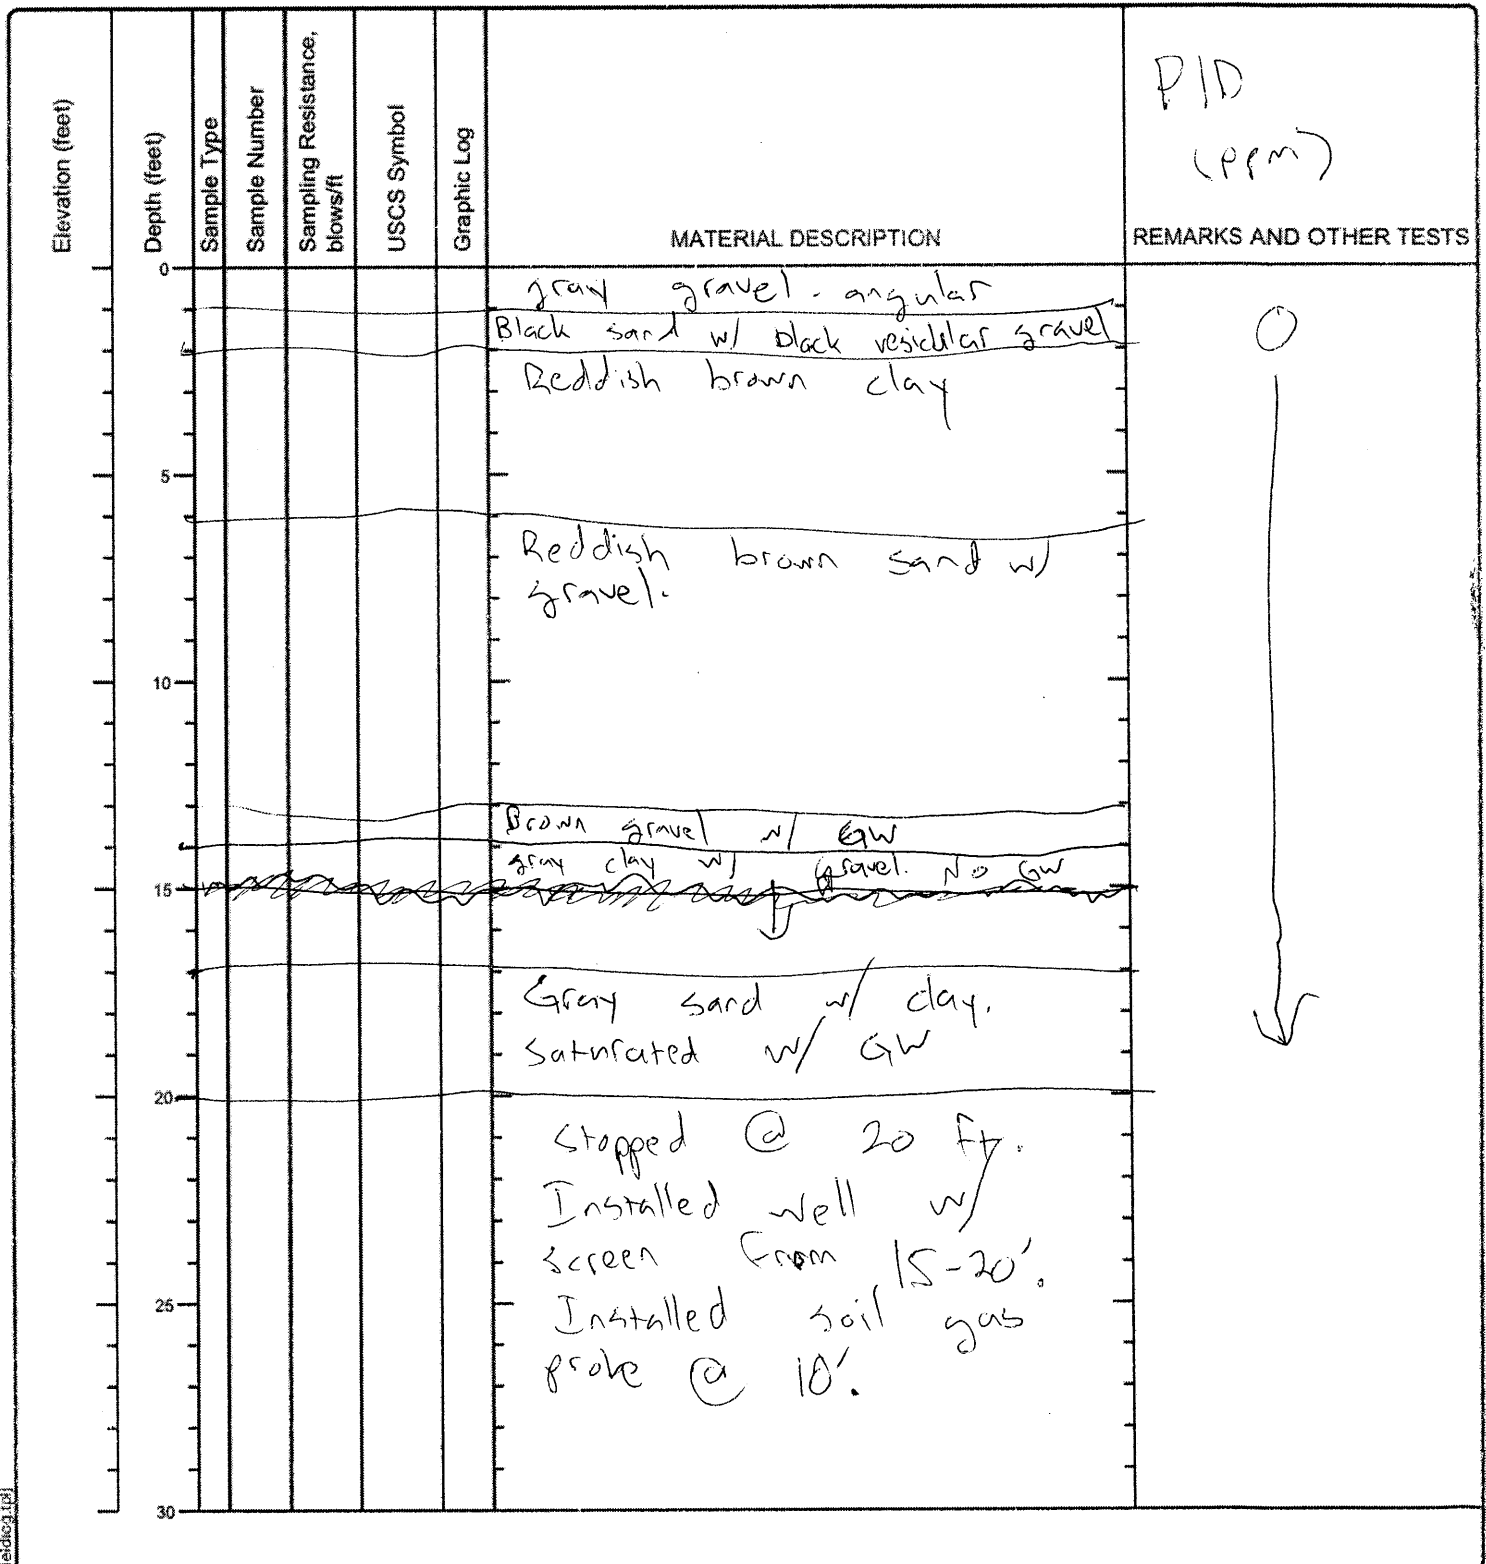 Elevation (feet)
Depth (feet)
Sample Type
Sample Number
Sampling Resistance,
blows/ft
USCS Symbol
Graphic Log
MATERIAL DESCRIPTION
PID
(ppm)
REMARKS AND OTHER TESTS
0
gray gravel - angular
0
Black sand w/ black vesicular gravel
Reddish brown clay
5
Reddish brown sand w/
gravel.
10
Brown gravel w/ GW
gray clay w/ gravel. No GW
15
Gray sand w/ clay.
Saturated w/ GW
20
Stopped @ 20 ft.
Installed well w/
screen from 15-20'.
25
Installed soil gas
probe @ 10'.
30